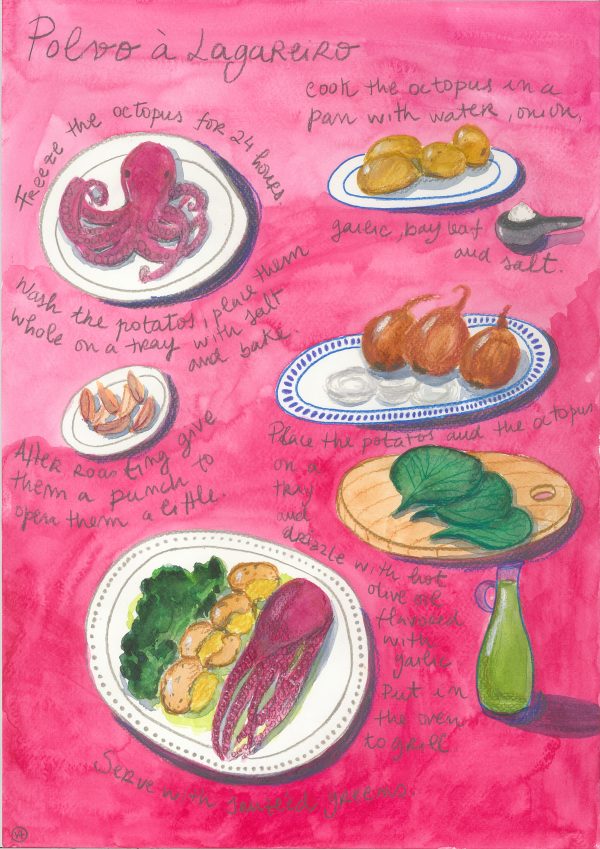 Polvo à Lagareiro
Freeze the octopus for 24 hours
cook the octopus in a
pan with water, onion,
garlic, bay leaf
and salt.
Wash the potatos, place them
whole on a tray with salt
and bake.
After roasting give
them a punch to
open them a little.
Place the potatos and the octopus
on a
tray
and
drizzle with hot
olive oil
flavored
with
garlic
Put in
the oven
to grill
Serve with sauteed greens.